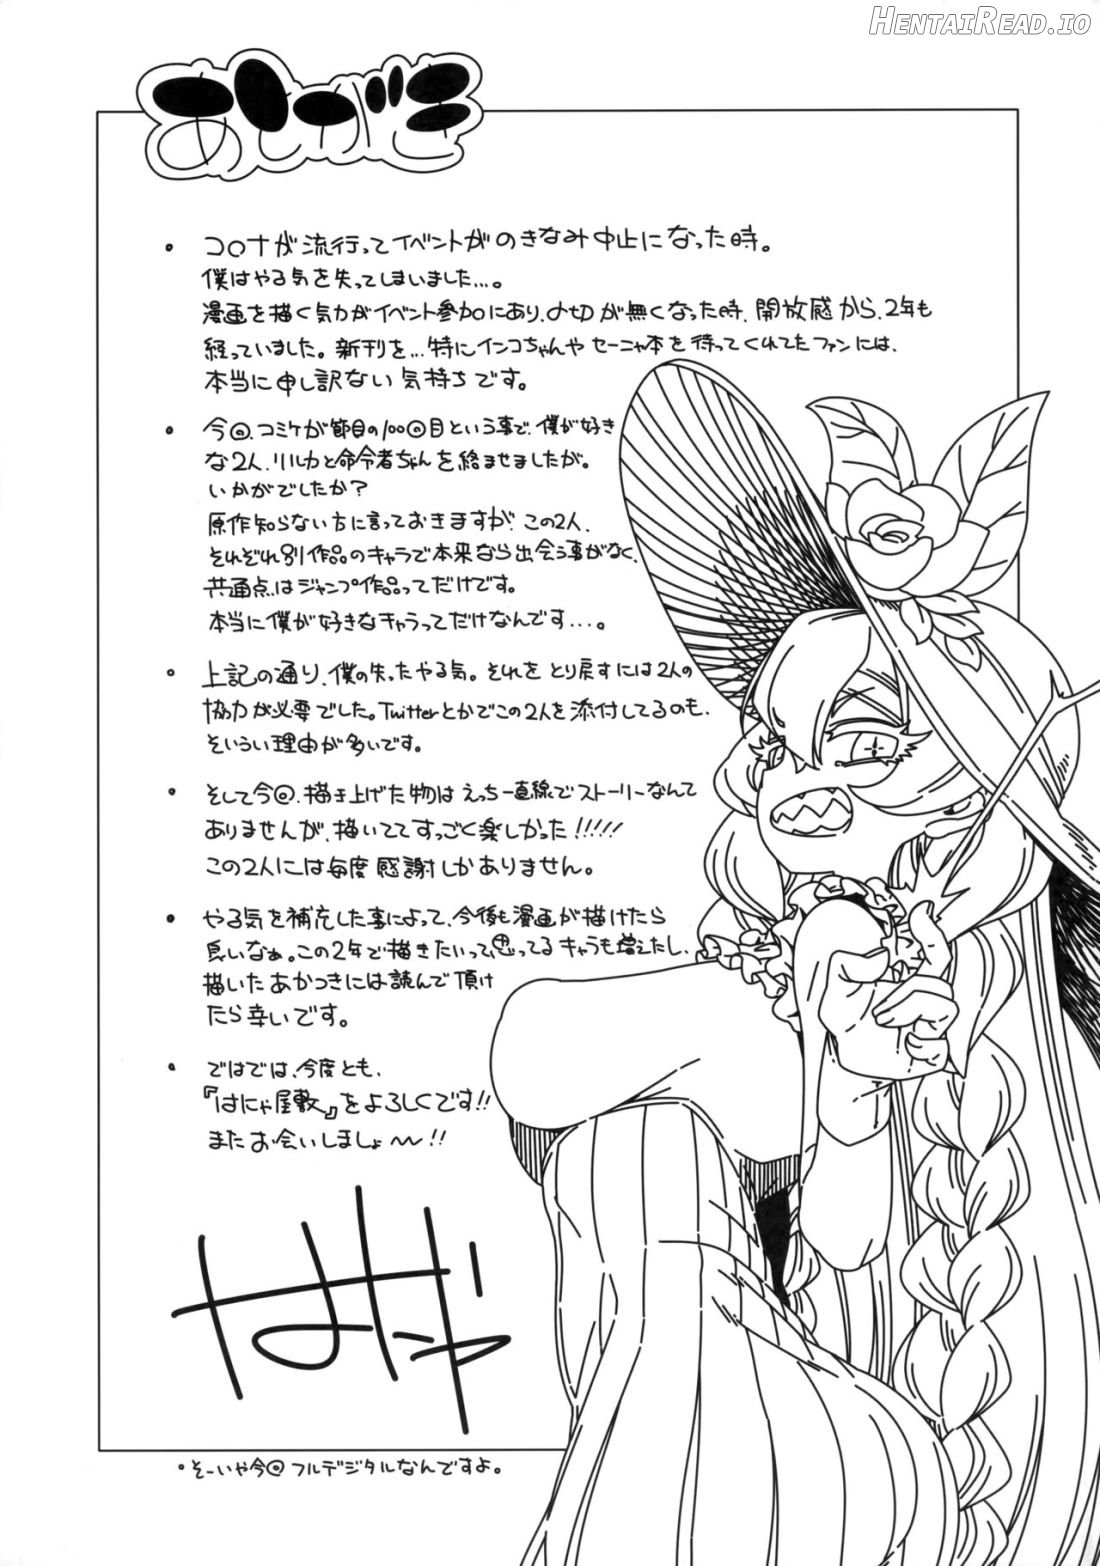 HENTAIREAD.IO
あとがき
・コロナが流行ってイベントがのきなみ中止になった時。
僕はやる気を失ってしまいました…。
漫画を描く気力がイベント参加にあり、〆切が無くなった時、開放感から、2年も
経っていました。新刊を…特にインコちゃんやセーニャ本を待ってくれてたファンには、
本当に申し訳ない気持ちです。
・今回、コミケが節目の100回目という事で、僕が好き
な2人、リルカと命令者ちゃんを絡ませましたが。
いかがでしたか?
原作知らない方に言っておきますが、この2人、
それぞれ別作品のキャラで本来なら出会う事がなく、
共通点はジャンプ作品ってだけです。
本当に僕が好きなキャラってだけなんです…。
・上記の通り、僕の失ったやる気。それをとり戻すには2人の
協力が必要でした。Twitterとかでこの2人を添付してるのも、
そういうい理由が多いです。
・そして今回、描き上げた物はえっち一直線でストーリーなんて
ありませんが、描いててすっごく楽しかった!!!!!
この2人には毎度感謝しかありません。
・やる気を補充した事によって、今後も漫画が描けたら
良いなぁ。この2年で描きたいって思ってるキャラも増えたし、
描いたあかつきには読んで頂け
たら幸いです。
・ではでは、今度とも、
『はにゃ屋敷』をよろしくです!!
またお会いしましょ〜!!
はにゃ
・そーいや今回フルデジタルなんですよ。